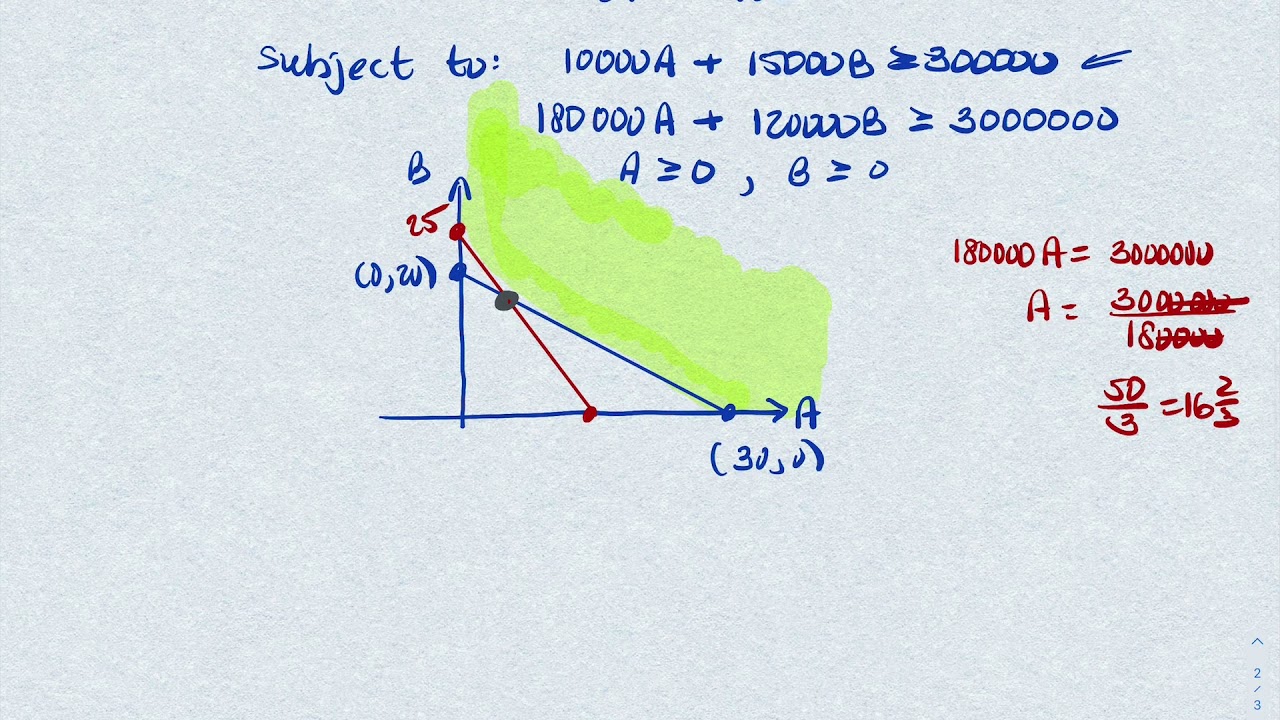 Subject to: 10000A + 15000B ≥ 300000
180000A + 120000B ≥ 3000000
A ≥ 0 , B ≥ 0
B
25
(0,20)
A
(30,0)
180000A = 3000000
A = 3000000/180000
50/3 = 16 2/3
2
/
3